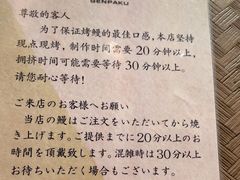 GENPAKU
尊敬的客人
为了保证烤鳗的最佳口感，本店坚持
现点现烤，制作时间需要 20 分钟以上，
拥挤时间可能需要等待 30 分钟以上。
请您耐心等待！
ご来店のお客様へお願い
当店の鰻はご注文をいただいてから焼
き上げます。ご提供までに20分以上のお
時間を頂戴致します。混雑時は30分以上
お待ちいただく場合もございます。